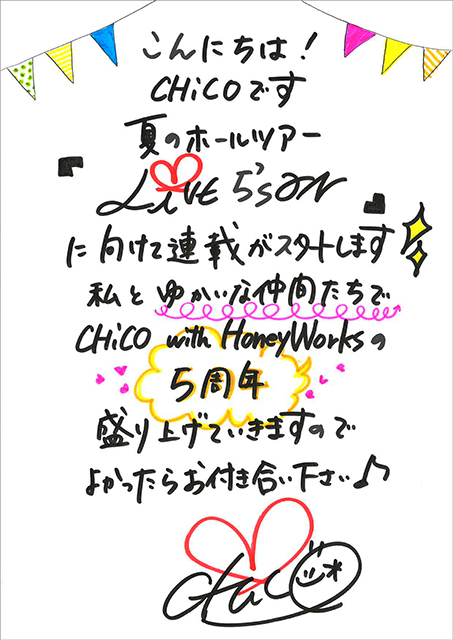 こんにちは!
CHiCOです
夏のホールツアー
LiVE 5'sON
に向けて連載がスタートします
私とゆかいな仲間たちで
CHiCO with HoneyWorksの
5周年
盛り上げていきますので
よかったらお付き合い下さい♪
CHiCO